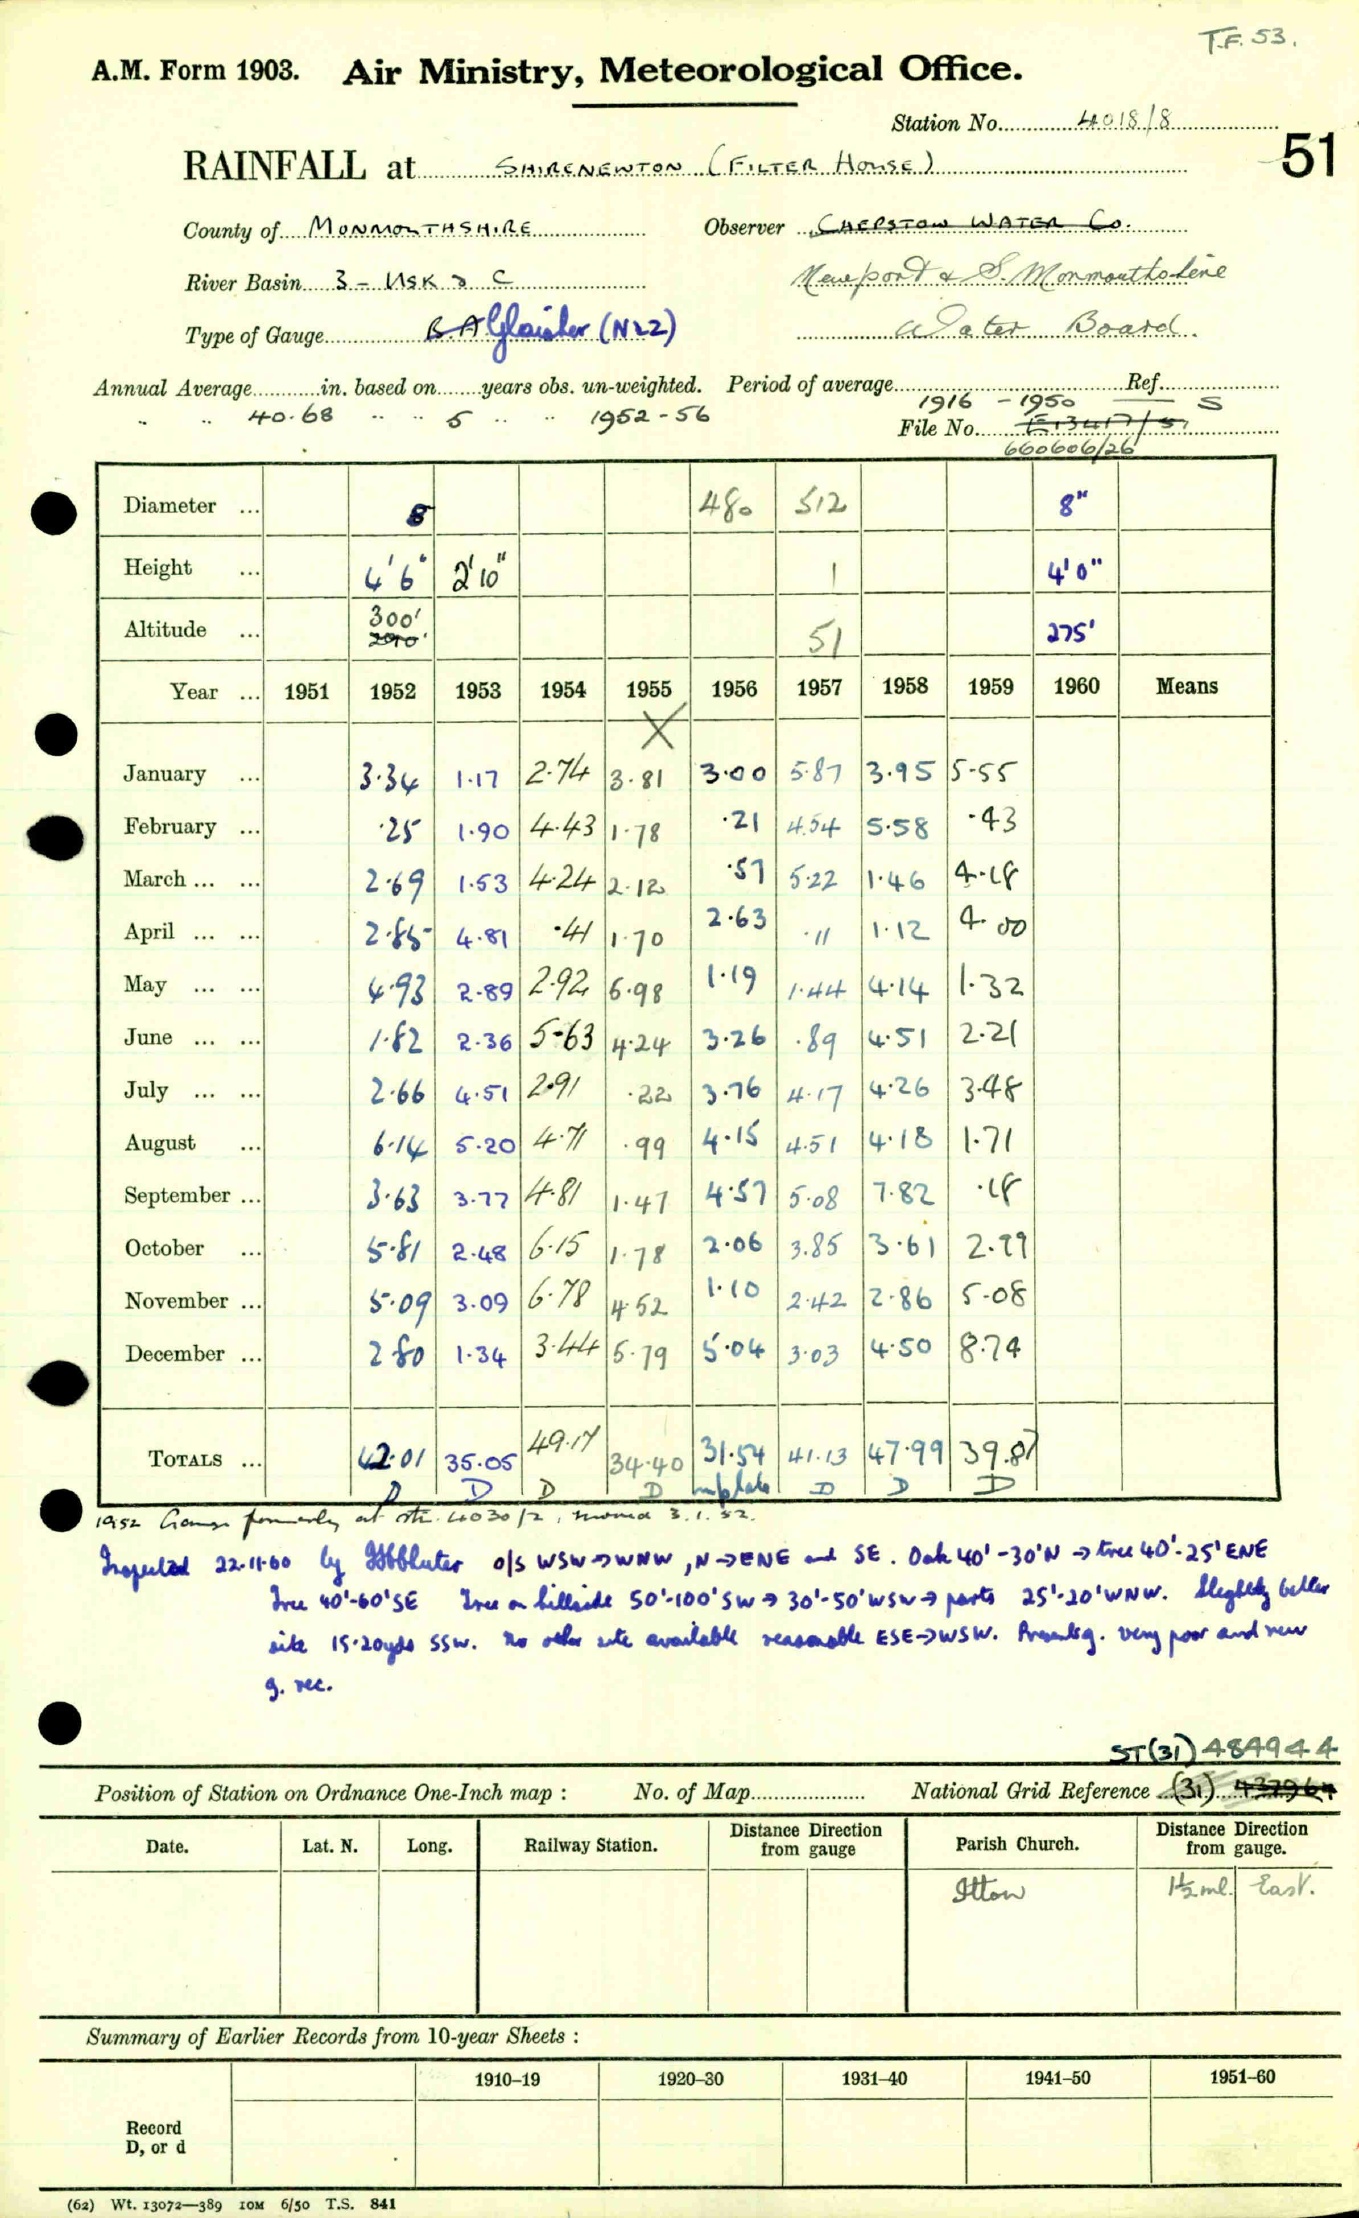 T.F. 53.
A.M. Form 1903. Air Ministry, Meteorological Office.
Station No. 4018/8
51
RAINFALL at SHIRENEWTON (FILTER HOUSE)
County of MONMOUTHSHIRE Observer CHEPSTOW WATER Co.
River Basin 3 - USK & C Newport & S. Monmouthshire
Type of Gauge B.A Glaisher (N22) Water Board.
Annual Average in. based on years obs. un-weighted. Period of average 1916 - 1950 Ref. S
" " 40.68 " " 5 " " 1952-56 File No. E13417/51
660606/26
Diameter ... 8 480 512 8"
Height ... 4'6" 2'10" 1 4'0"
Altitude ... 300' 290' 51 275'
Year ... 1951 1952 1953 1954 1955 1956 1957 1958 1959 1960 Means
X
January ... 3.34 1.17 2.74 3.81 3.00 5.87 3.95 5.55
February ... .25 1.90 4.43 1.78 .21 4.54 5.58 .43
March ... ... 2.69 1.53 4.24 2.12 .57 5.22 1.46 4.18
April ... ... 2.85 4.81 .41 1.70 2.63 .11 1.12 4.00
May ... ... 4.93 2.89 2.92 5.98 1.19 1.44 4.14 1.32
June ... ... 1.82 2.36 5.63 4.24 3.26 .89 4.51 2.21
July ... ... 2.66 4.51 2.91 .22 3.76 4.17 4.26 3.48
August ... 6.14 5.20 4.71 .99 4.15 4.51 4.18 1.71
September ... 3.63 3.77 4.81 1.47 4.57 5.08 7.82 .18
October ... 5.81 2.48 6.15 1.78 2.06 3.85 3.61 2.99
November ... 5.09 3.09 6.78 4.52 1.10 2.42 2.86 5.08
December ... 2.80 1.34 3.44 5.79 5.04 3.03 4.50 8.74
TOTALS ... 42.01 35.05 49.17 34.40 31.54 41.13 47.99 39.87
D D D D D D D
1952 Gauge formerly at stn. 4030/2, moved 3.1.52.
Inspected 22.11.60 by o/s WSW→WNW, N→ENE and SE. Oak 40'-30'N → tree 40'-25'ENE
Tree 40'-60'SE Tree on hillside 50'-100'SW → 30'-50'WSW → 25'-20'WNW. Slightly better
site 15-20yds SSW. No other site available reasonable ESE→WSW. Present g. very poor and new
g. rec.
ST(31) 484944
Position of Station on Ordnance One-Inch map : No. of Map National Grid Reference (31)
Date. Lat. N. Long. Railway Station. Distance Direction from gauge Parish Church. Distance Direction from gauge.
Itton 1½ ml. East.
Summary of Earlier Records from 10-year Sheets :
1910–19 1920–30 1931–40 1941–50 1951–60
Record
D, or d
(62) Wt. 13072—389 10M 6/50 T.S. 841